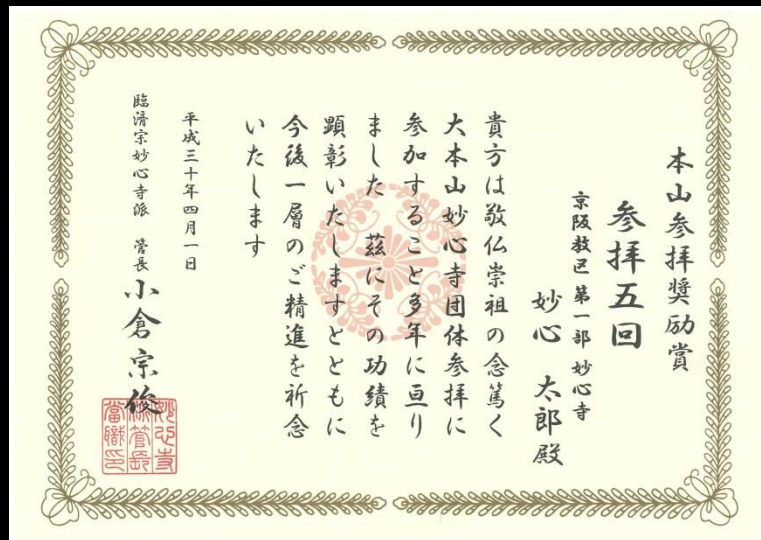 本山参拝奨励賞
参拝五回
京阪教区 第一部 妙心寺
妙心 太郎殿
貴方は敬仏崇祖の念篤く
大本山妙心寺団体参拝に
参加すること多年に亘り
ました 茲にその功績を
顕彰いたしますとともに
今後一層のご精進を祈念
いたします
平成三十年四月一日
臨済宗妙心寺派 管長 小倉宗俊
妙心寺
派管長
當職印